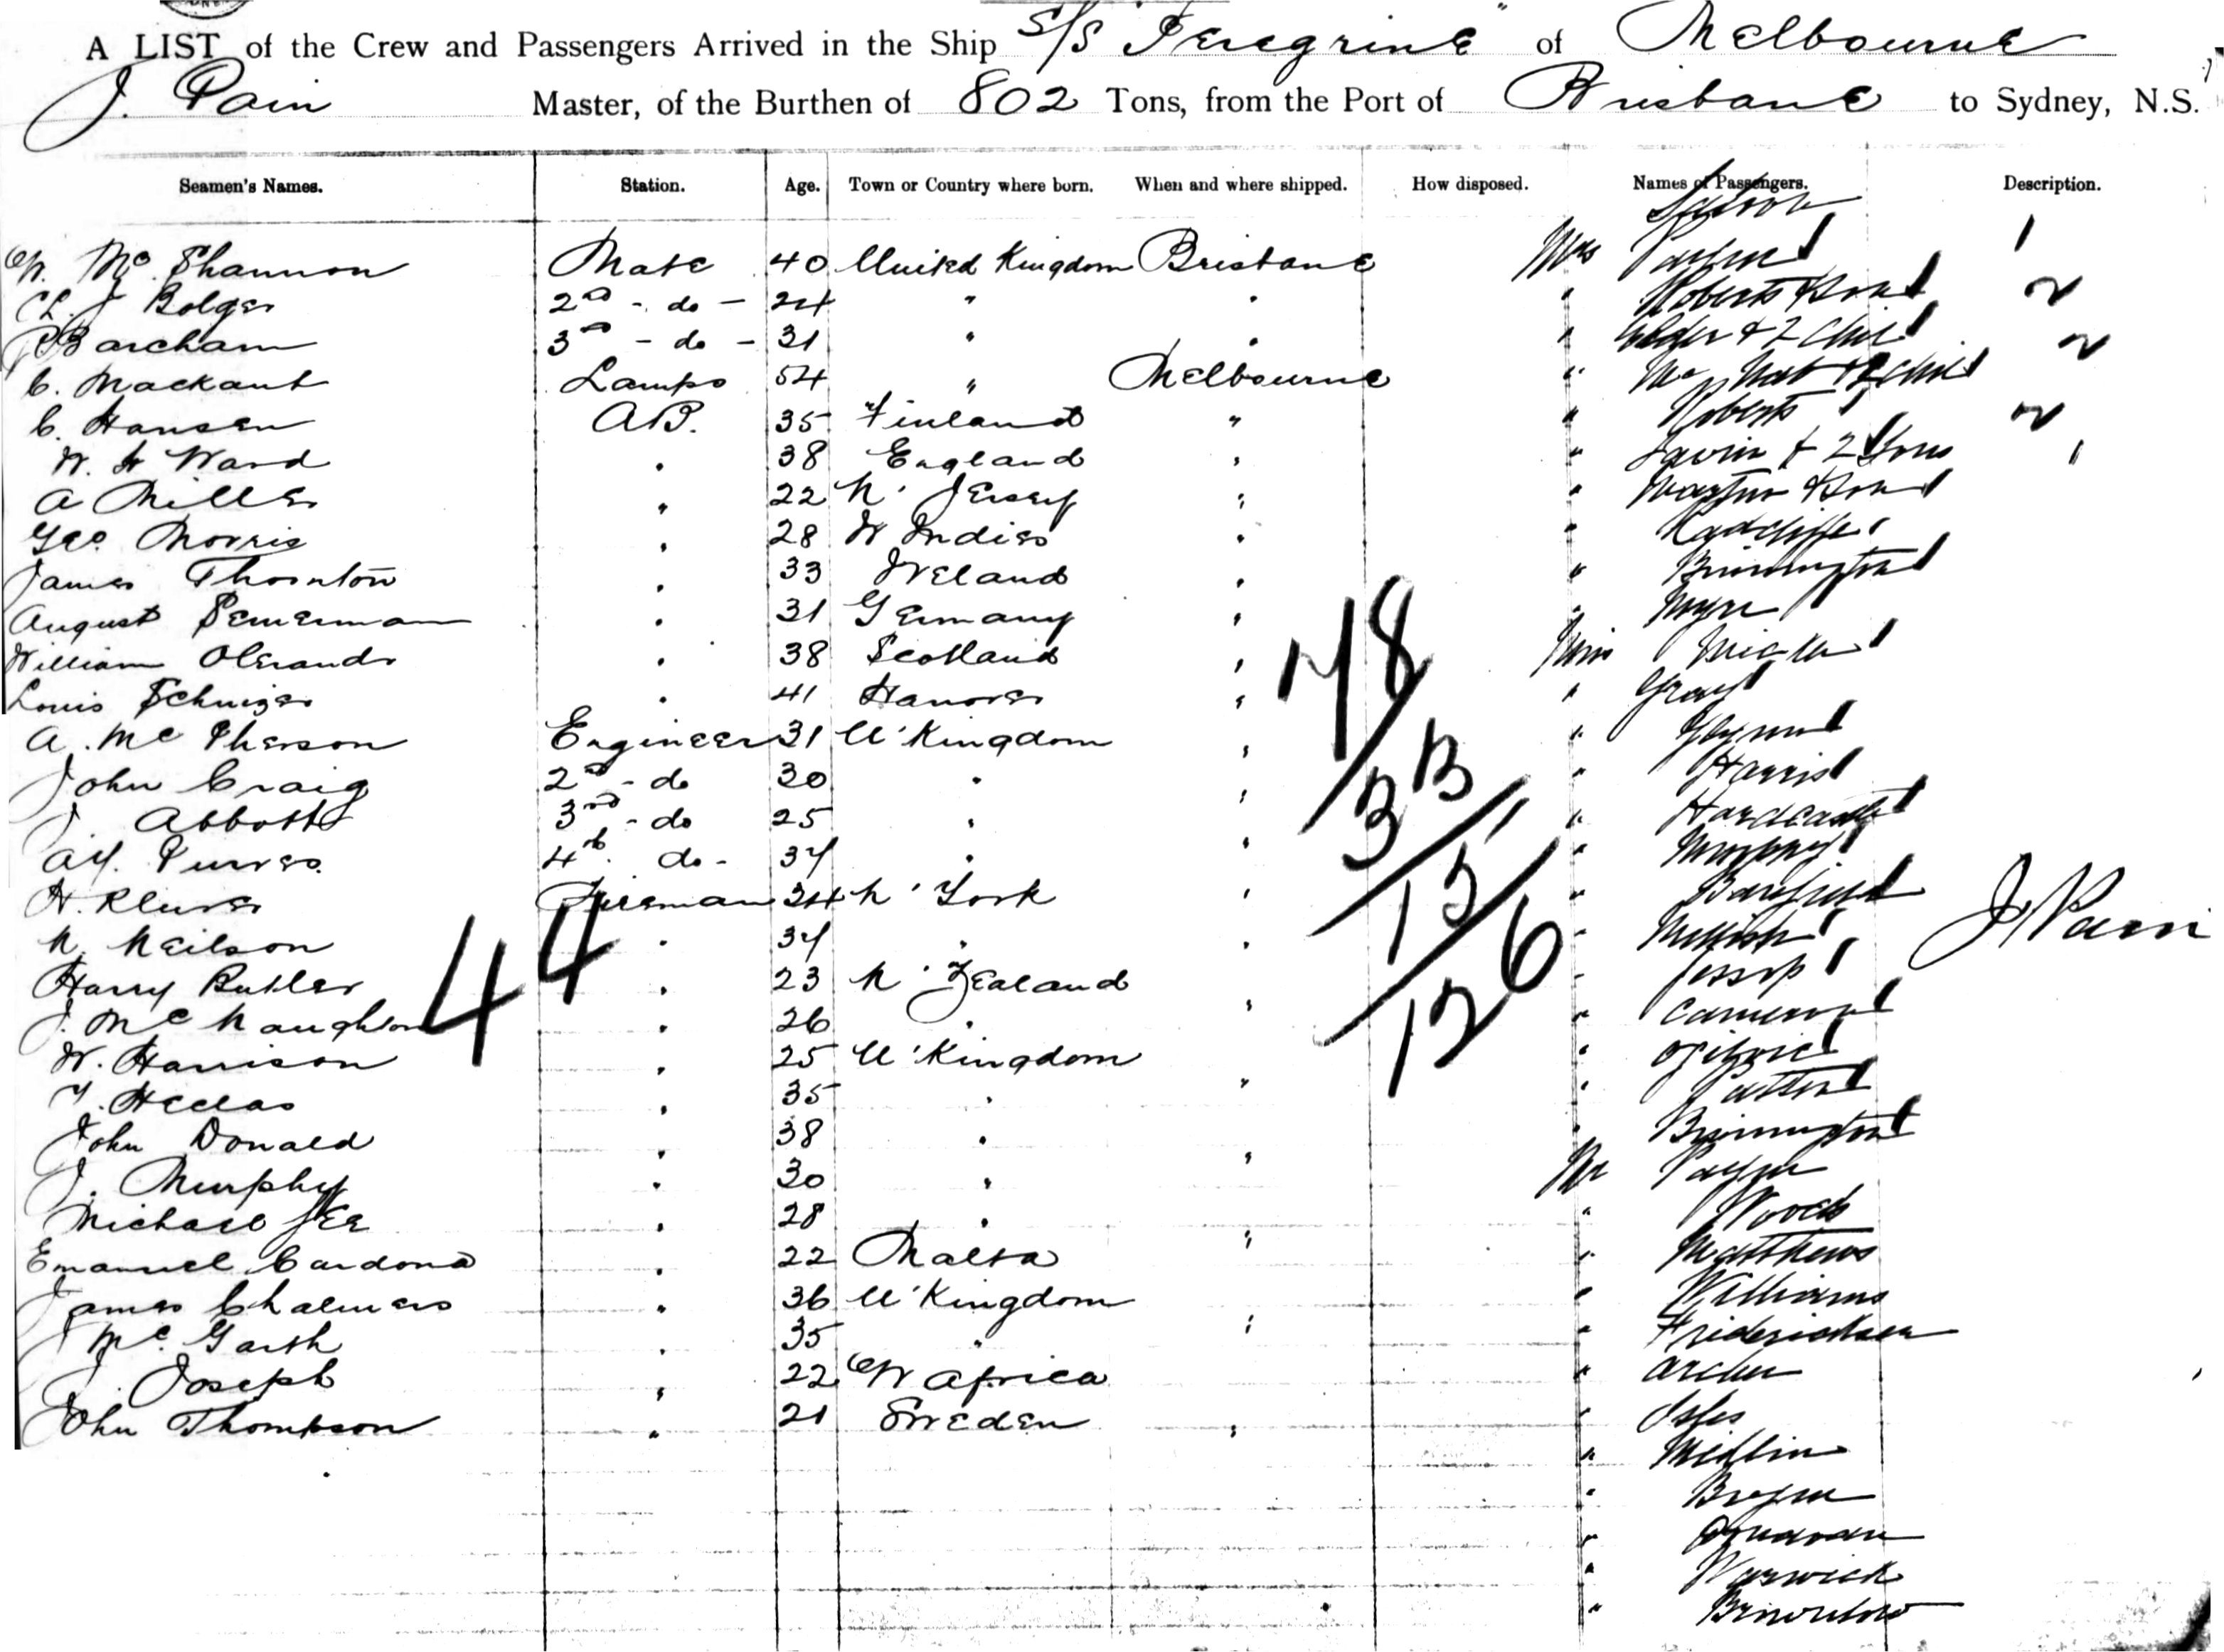 A LIST of the Crew and Passengers Arrived in the Ship S/S "Peregrine" of Melbourne
J. Pain Master, of the Burthen of 802 Tons, from the Port of Brisbane to Sydney, N.S.
Seamen's Names. Station. Age. Town or Country where born. When and where shipped. How disposed. Names of Passengers. Description.
Saloon
W. Mc Shannon Mate 40 United Kingdom Brisbane Mrs Payne 1
Bolger 2nd - do - 24 " " " Roberts & Son 2
Barcham 3rd - do - 31 " " " & 2 Chil 2
C. Mackant Lamps 54 " Melbourne "
C. Hansen A.B. 35 Finland " " Roberts 2
W. H Ward " 38 England " " Lavin & 2 Sons 1
A Miller " 22 N. Jersey " " Martin & Son
Geo Morris " 28 W Indies " " Radcliffe
James Thornton " 33 Ireland " " Brinnington
August " 31 Germany " "
William " 38 Scotland " Miss
Louis " 41 Hanover " " Gray
A. Mc Pherson Engineer 31 U'Kingdom " "
John Craig 2nd - do 30 " " " Harris
J. Abbott 3rd - do 25 " " " Hardcastle
Purves 4th do - 37 " " " Murphy
H. Kluver Fireman 24 N' York " " Barfield
N. Neilson " 37 " " "
Harry Butler " 23 N' Zealand " Jessop
J. Mc Naughton " 26 " " " Cameron
W. Harrison " 25 U'Kingdom " Ogilvie
" 35 " " "
John Donald " 38 " " Brinnington
J. Murphy " 30 " " Mr Payne
Michael Lee " 28 " " Woods
Emanuel Cardona " 22 Malta " " Matthews
James Chalmers " 36 U'Kingdom " Williams
J Mc Garth " 35 " " " Fridericksen
J. Joseph " 22 W Africa " Archer
John Thompson " 21 Sweden " " Isles
" Medlin
"
" Donavan
" Warwick
" Brownlow
44
78
33
15
126
J Pain